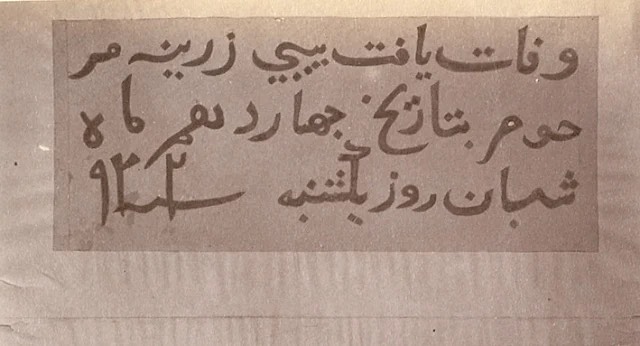 وفات یافت بیبي زرینه مر
حومر بتاریخ چهاردهم ماه
شعبان روز یکشنبه سنه ۹۳۲